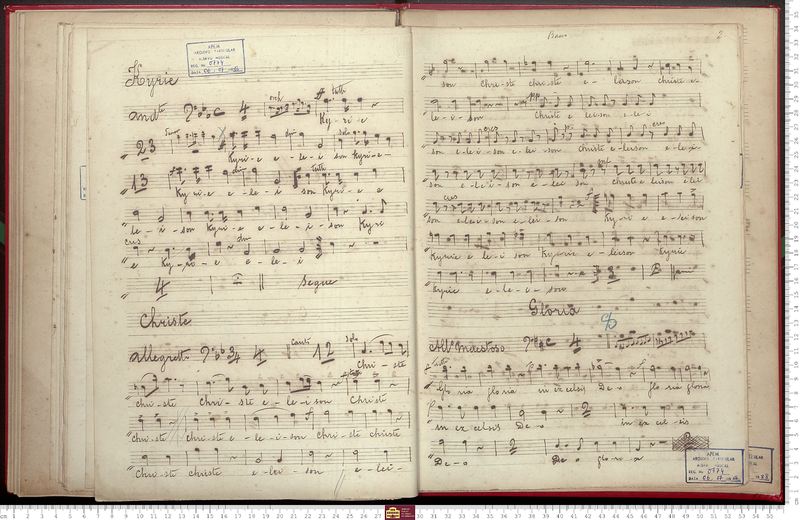 APEM
ARQUIVO PARTICULAR
ACERVO MUSICAL
Kyrie
andte C 4 tutti
Ky-ri-e
23
Kyri-e e-le-i son Kyri-e-
13 tutti
Ky ri-e e-le-i son Kyri-e e
le-i-son Kyri-e e-le-i-son Kyri
cres
e Ky-ri-e e-le-i
4 Segue
Christe
allegretto 3/4 4 Canto 12 solo
Chri-ste
Chri-ste Chri-ste e-le-i son Christe
Chri-ste Christe e-le-i-son Chri-ste christe
Chri-ste christe e-lei-son e-lei-
Baxo 2
son Chri-ste chri ste e-leison christe e
le-i-son Christe e leison e-le-i
cres
son e-le-i-son e-lei-son christe e-leison e-le-i
son e-le-i-son e-lei son christe e leison e lei
cres
son e-lei-son e-lei-son Ky-ri e e-lei son
Kyrie e-le-i son Kyrie e-leison Kyrie
Kyrie e-le-i son
Gloria
Allo Maestoso C 4
Glo ria gloria in excelsis De-o glo ria gloria
in ex celsis De-o 2 in ex cel-sis
De-o 2 De-o glo-ri-a
APEM
ARQUIVO PARTICULAR
ACERVO MUSICAL